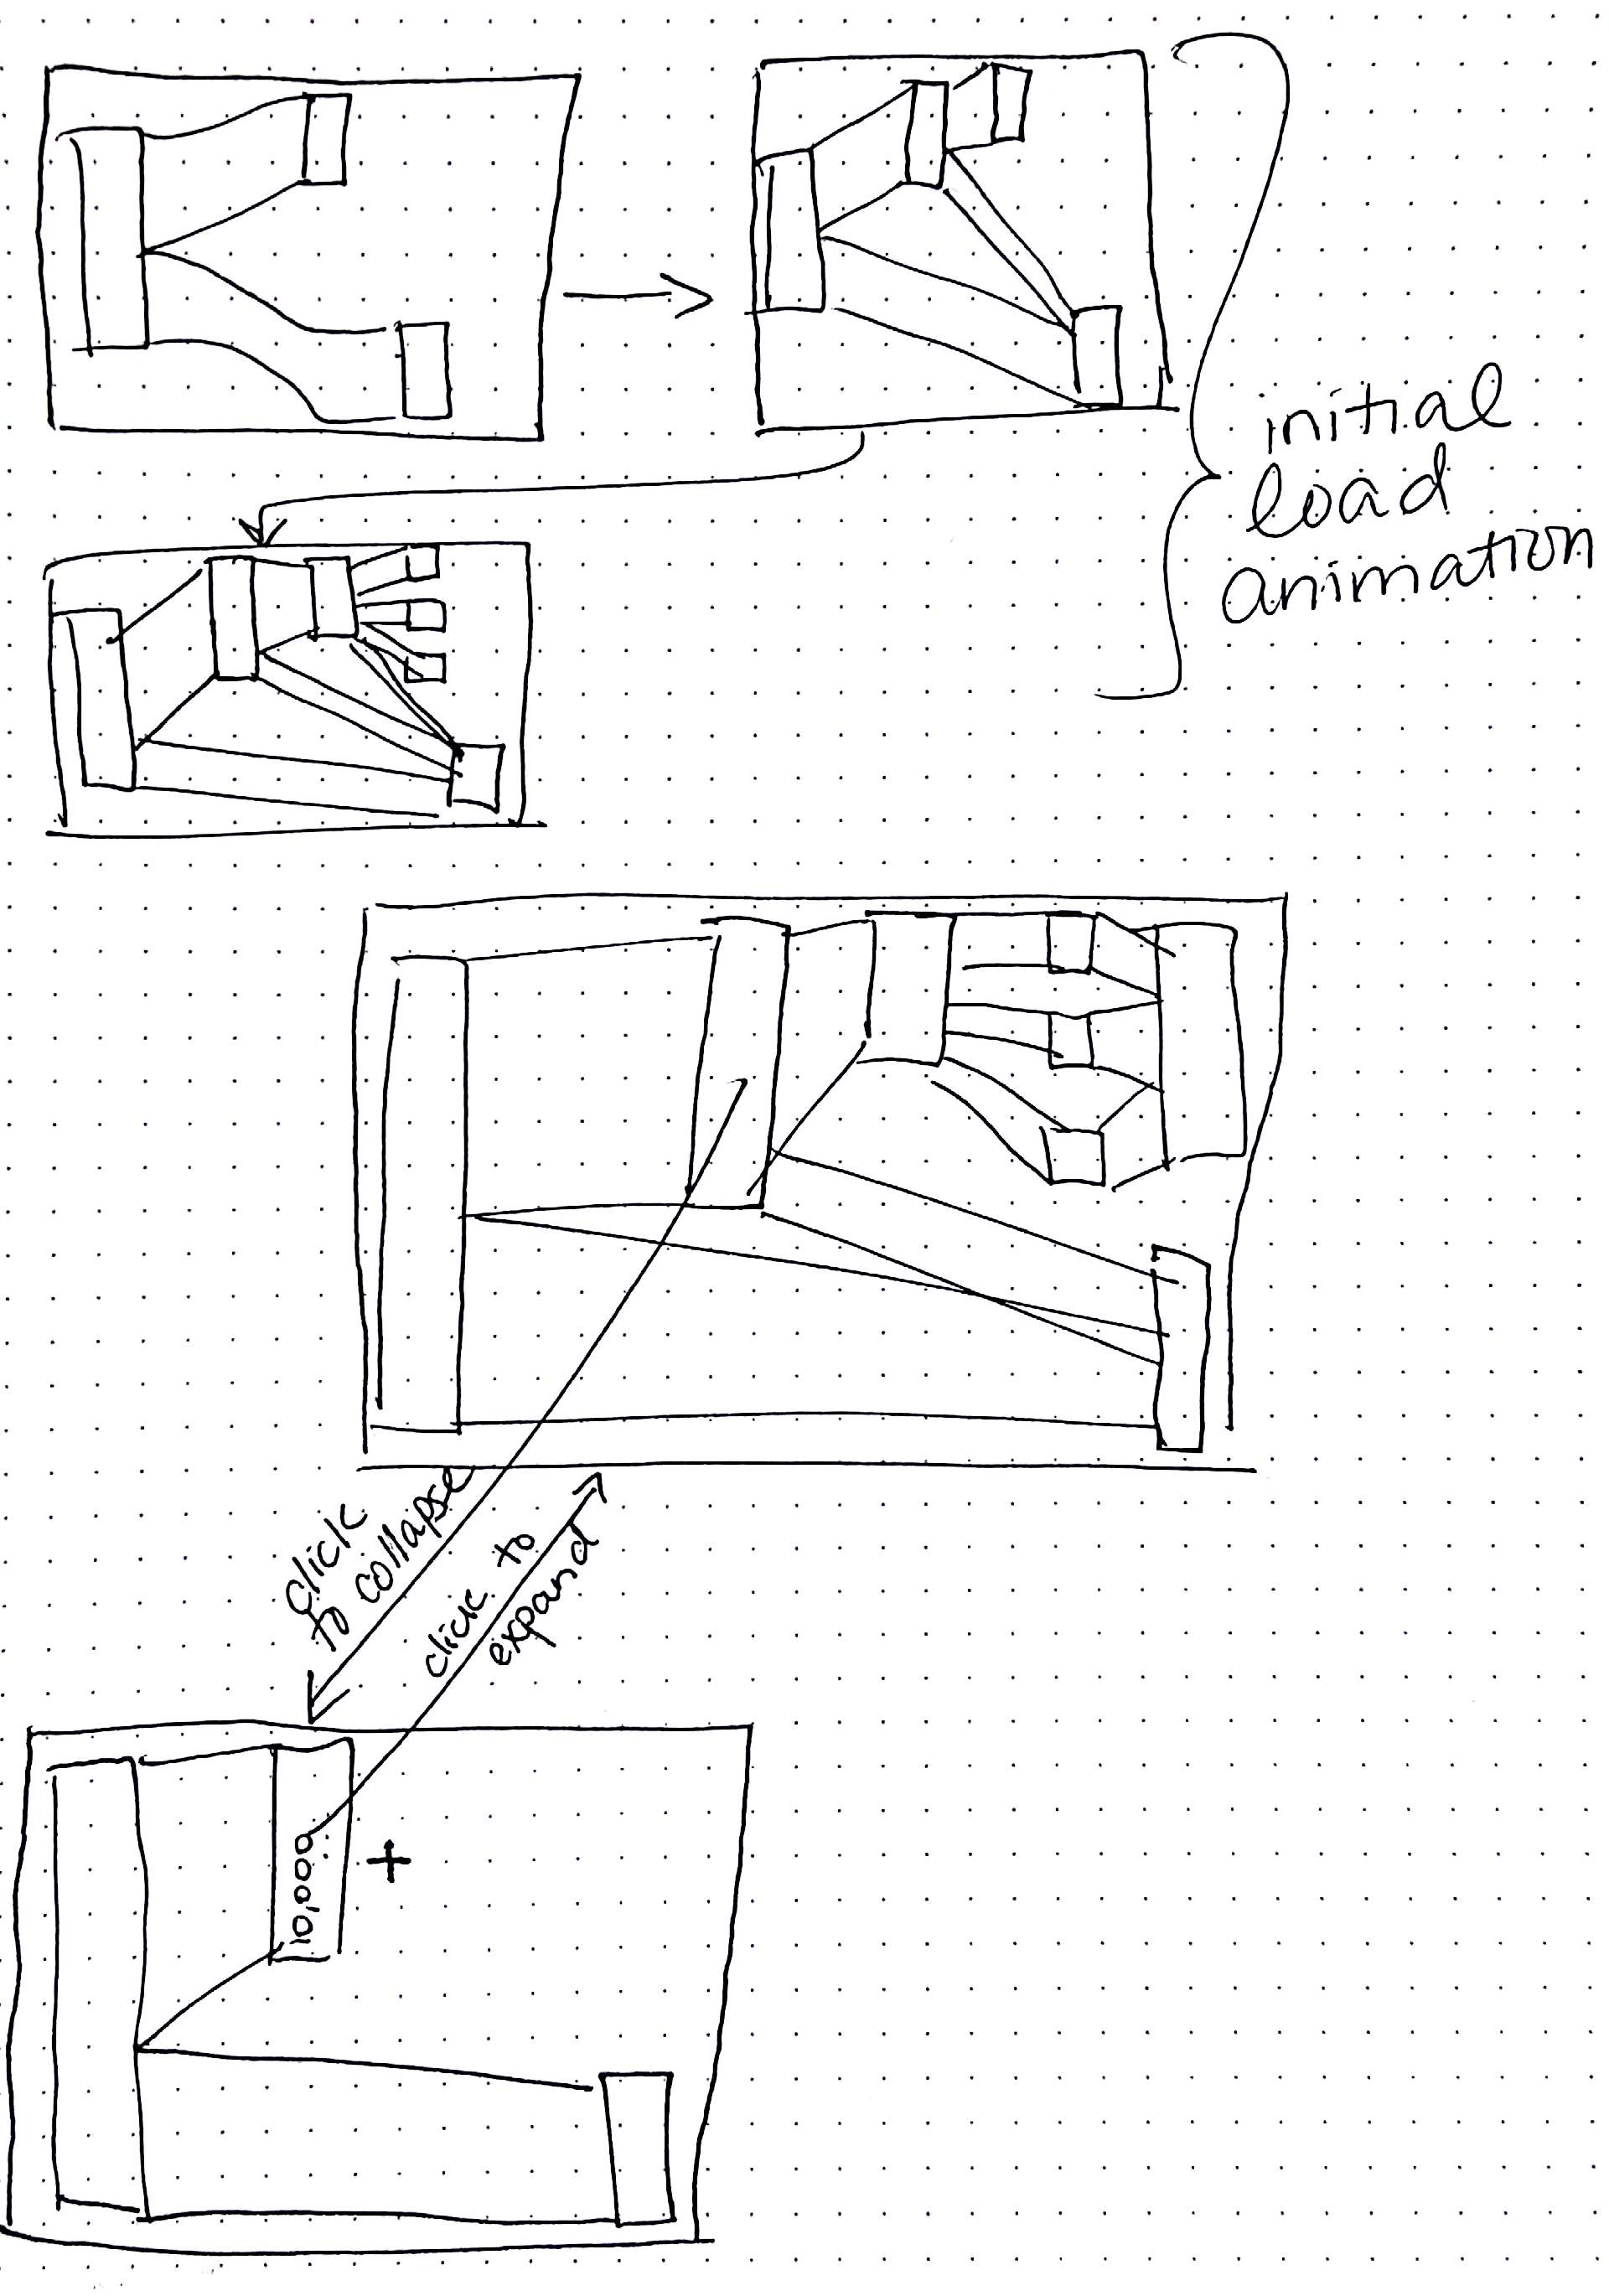 initial
load
animation
click
to collapse
click to
expand
10,000
+